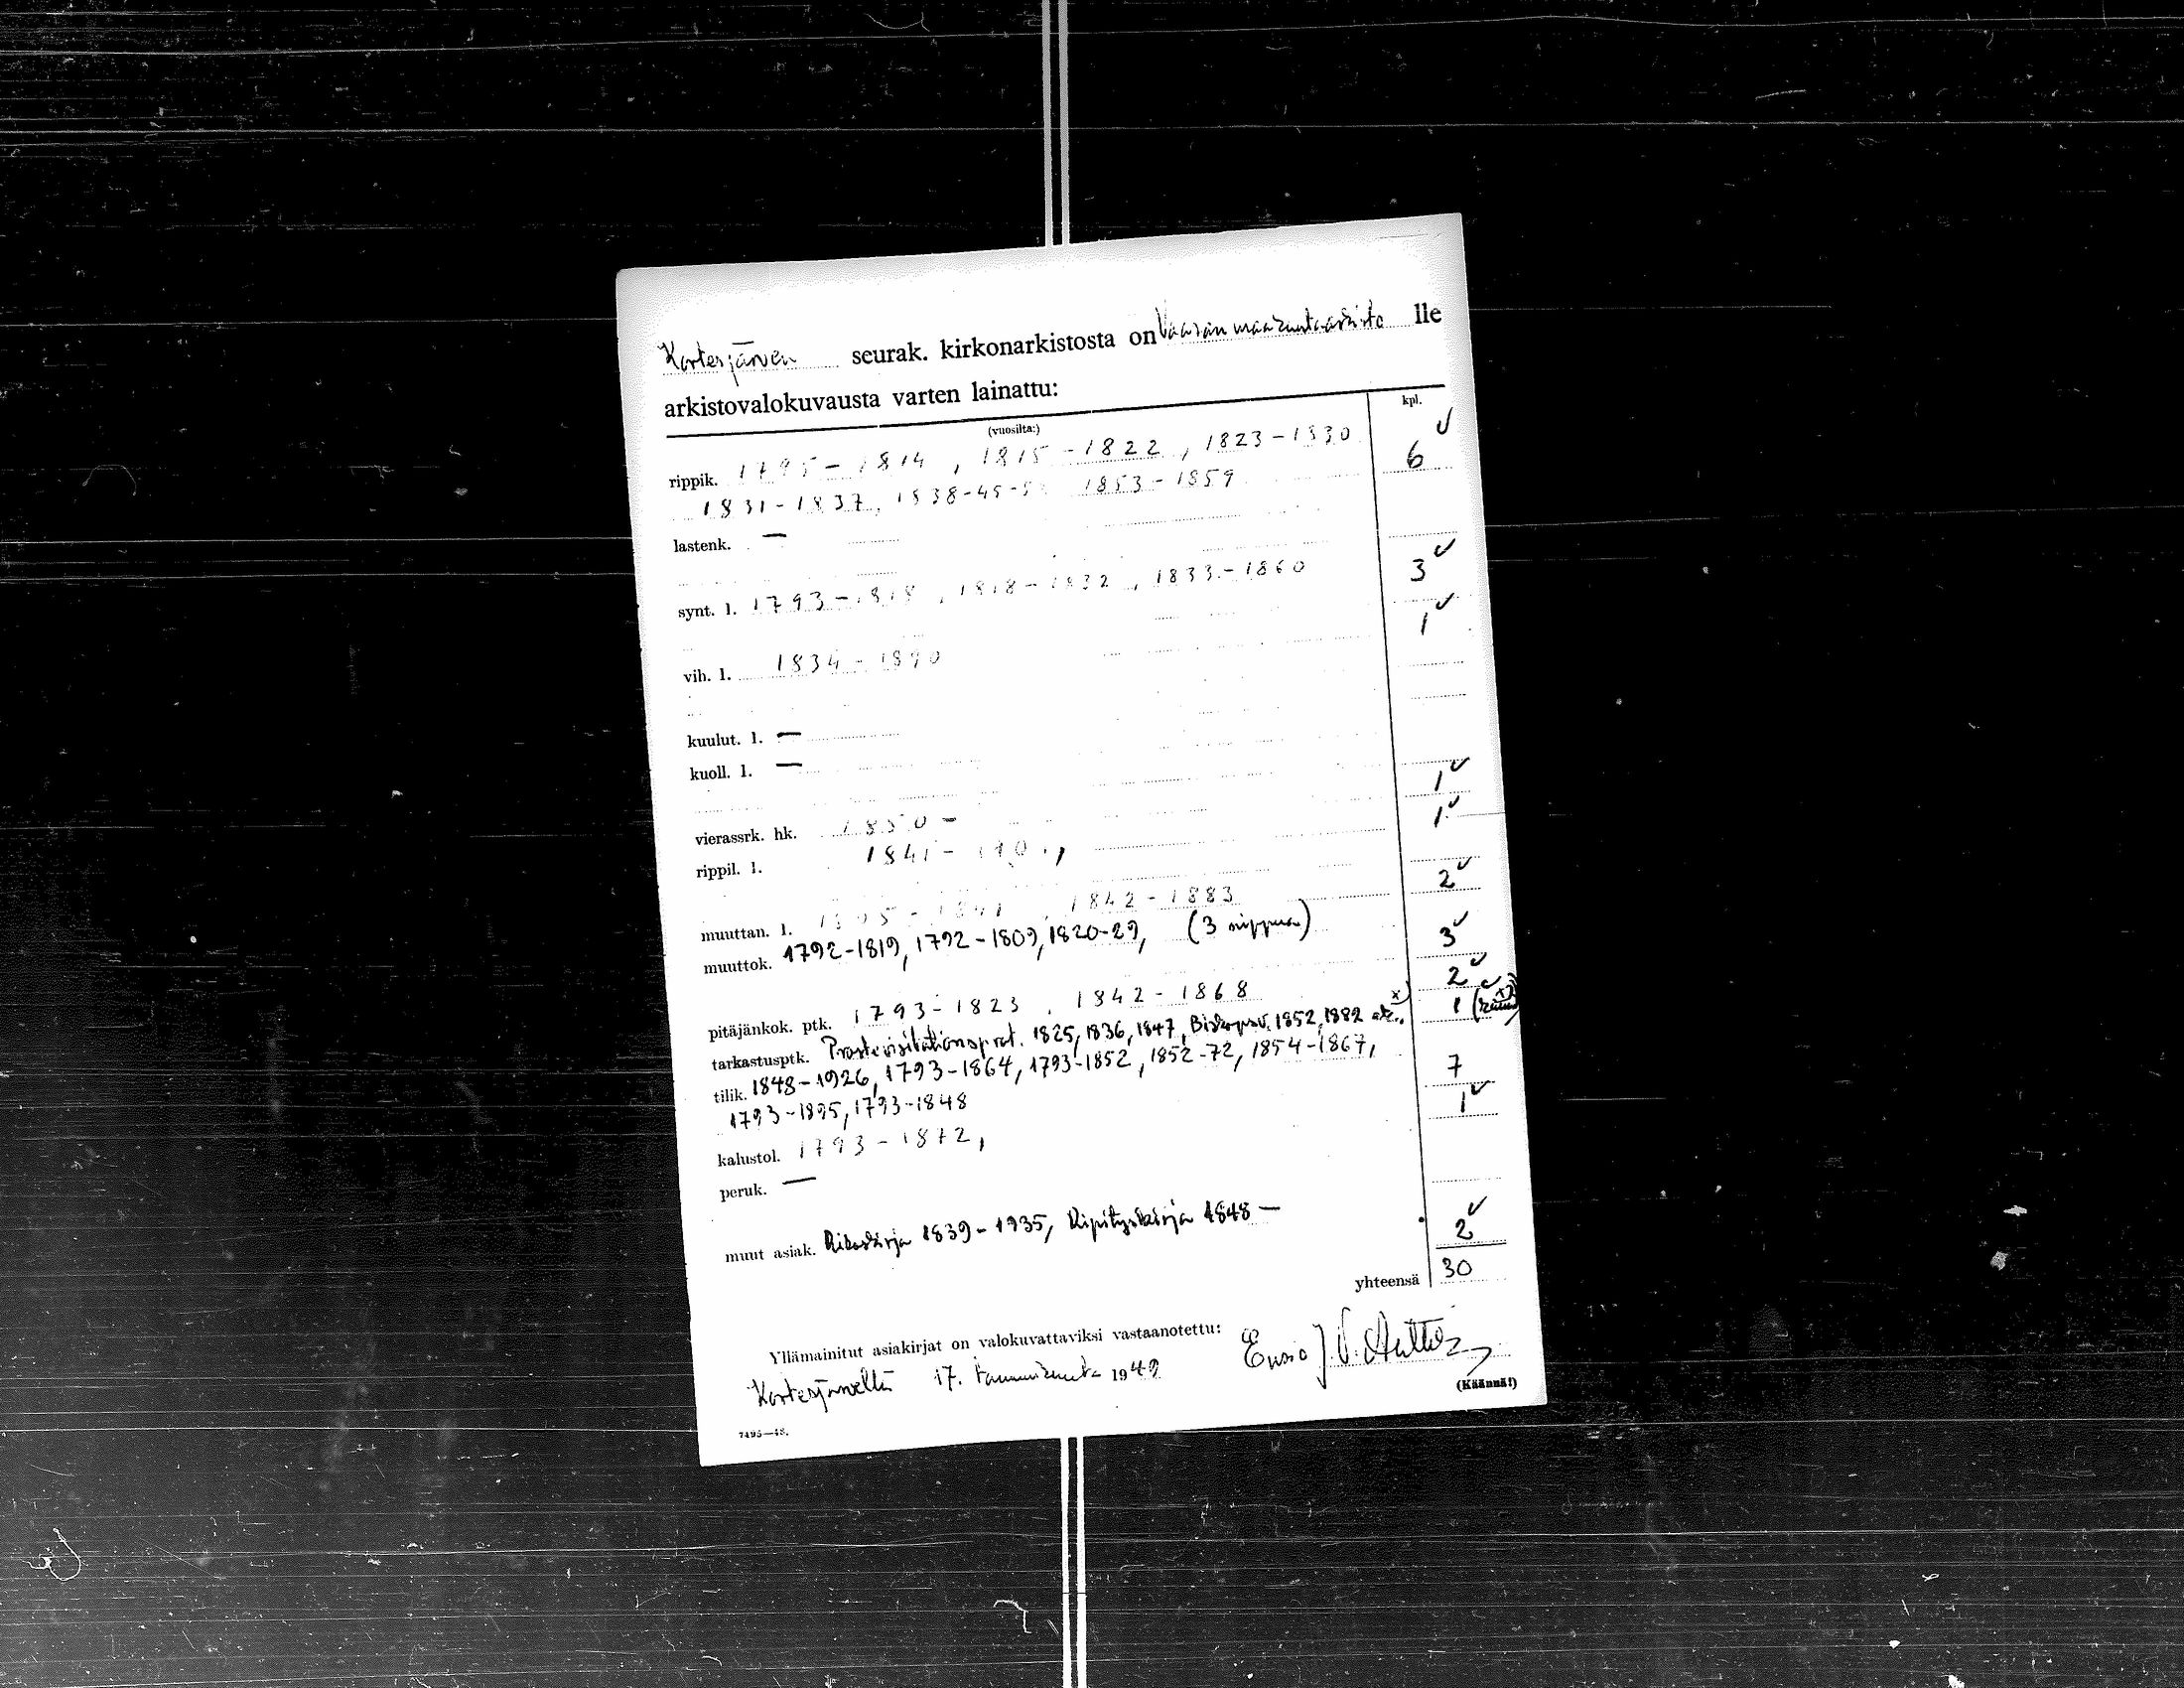 Kortesjärven seurak. kirkonarkistosta on Vaasan maakunta-arkisto lle
arkistovalokuvausta varten lainattu:
(vuosilta:) kpl.
rippik. 1795-1814, 1815-1822, 1823-1830 6 ✓
1831-1837, 1838-45-5 1853-1859
lastenk. —
synt. l. 1793-1818, 1818-1832, 1833-1860 3 ✓
vih. l. 1834-1890 1 ✓
kuulut. l. —
kuoll. l. —
vierassrk. hk. 1850- 1 ✓
rippil. l. 1841- 1 ✓
muuttan. l. 1842-1883 2 ✓
muuttok. 1792-1819, 1792-1809, 1820-29, (3 nippua) 3 ✓
pitäjänkok. ptk. 1793-1823, 1842-1868 2 ✓
tarkastusptk. Prostevisitationsprot. 1825, 1836, 1847, 1852, 1882 x) 1 ✓
tilik. 1848-1926, 1793-1864, 1793-1852, 1852-72, 1854-1867, 7
1793-1895, 1793-1848
kalustol. 1793-1872, 1 ✓
peruk. —
muut asiak. Rikoskirja 1839-1935, Ripityskirja 1848— 2 ✓
yhteensä 30
Yllämainitut asiakirjat on valokuvattaviksi vastaanotettu:
Kortesjärvellä 17. tammikuuta 1949 Ensio J. V.
(Käännä!)
7495—48.